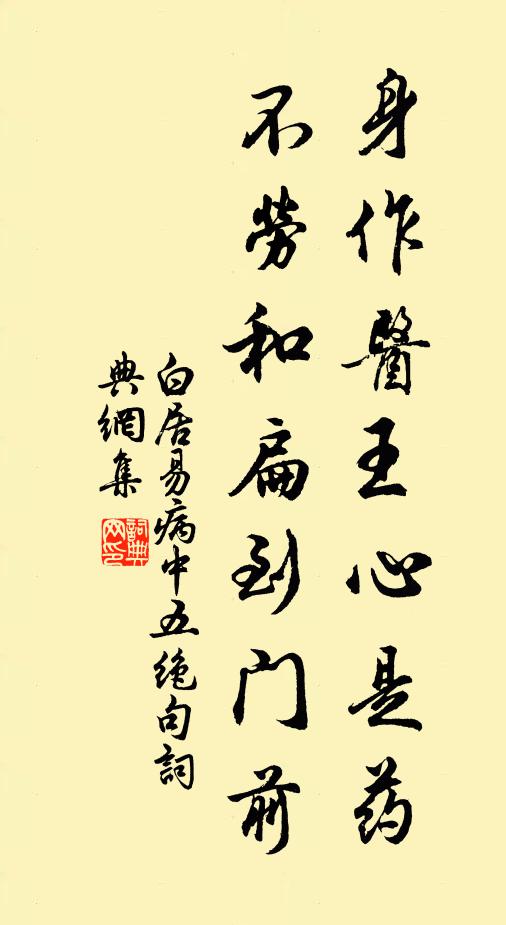 身作醫王心是药
不勞和扁到門前
白居易病中五绝句詞
典網集
詞典
网印